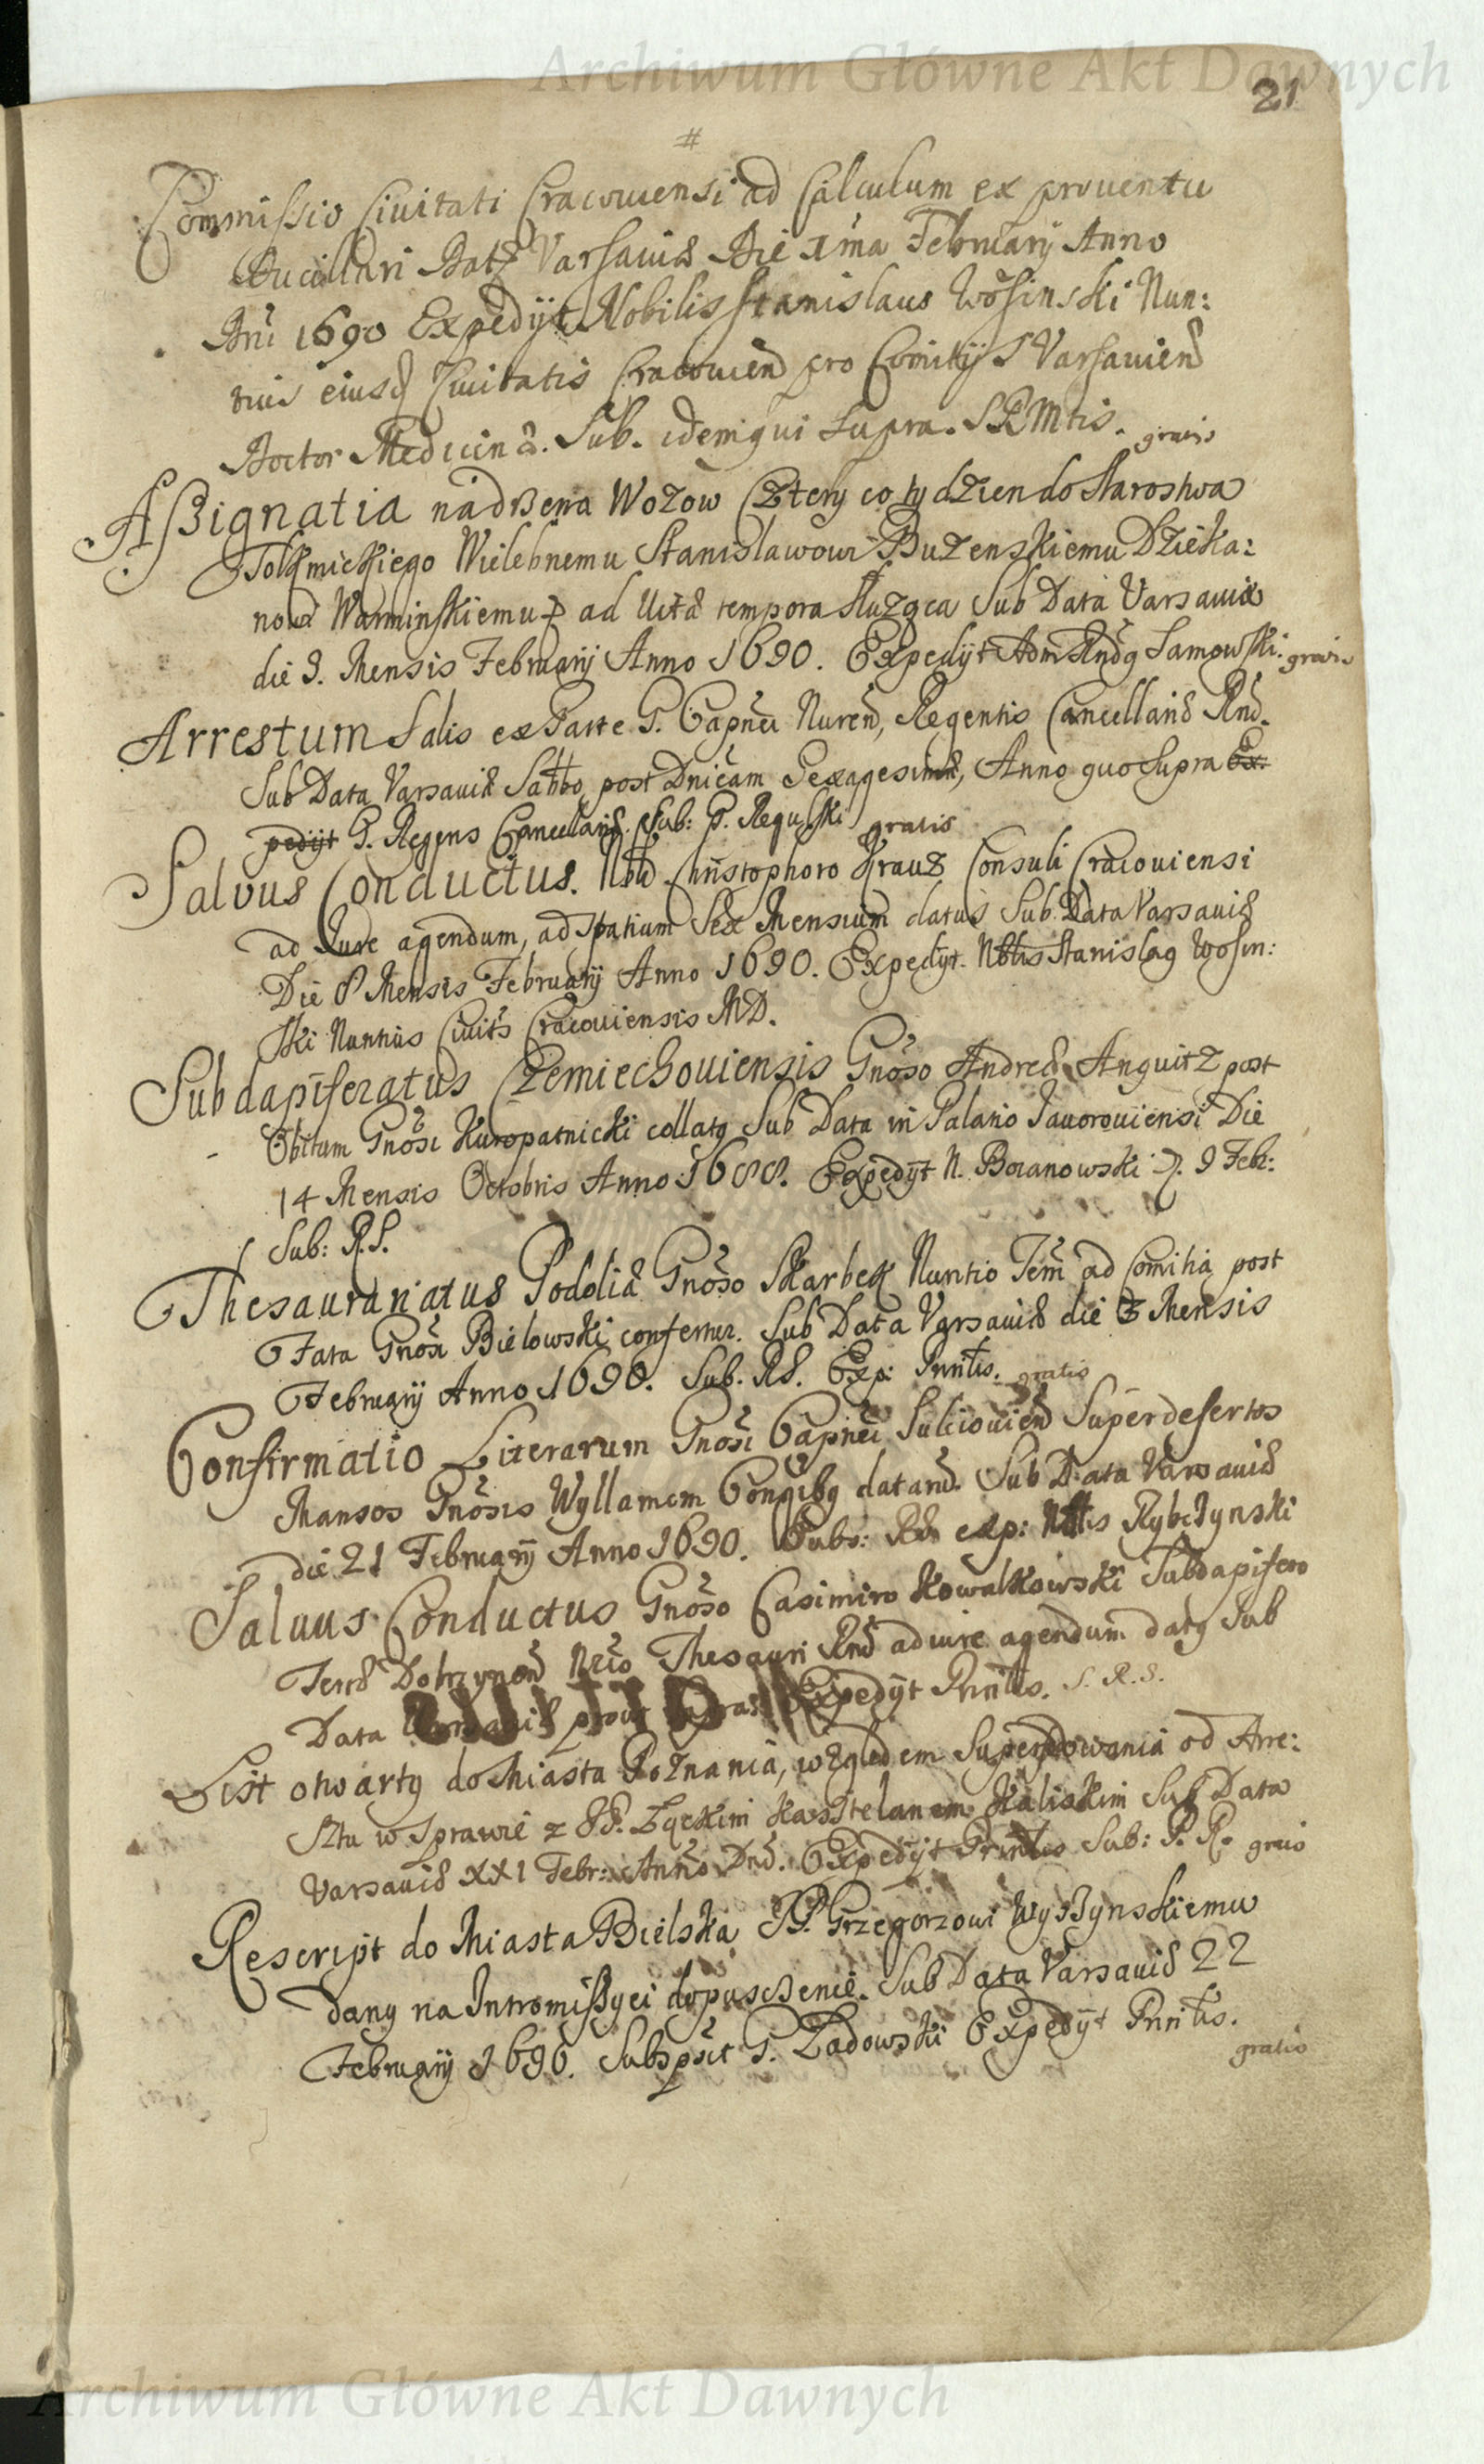 Archiwum Główne Akt Dawnych
21
#
Commissio Civitati Cracoviensi ad Calculum ex proventu
Ducillari Datæ Varsaviæ Die 1ma Februarij Anno
Dni 1690 Expedijt Nobilis Stanislaus Wosinski Nun:
tius eiusd Civitatis Cracovien pro Comitijs Varsavien
Doctor Medicinæ. Sub. idem qui supra. SRMtis. gratis
Assignatia na drzewa Wozow Cztery co tydzien do Starostwa
Tolkmickiego Wielebnemu Stanislawowi Buzenskiemu Dzieka:
nowi Warminskiemu ad Vitæ tempora służąca Sub Data Varsaviæ
die 3. Mensis Februarij Anno 1690. Expedijt Adm Rndq Samowski. gratis
Arrestum Salis ex Parte G. Capnei Nuren, Regentis Cancellariæ Rnd.
Sub Data Varsaviæ Sabbo post Dnicam Sexagesimæ, Anno quo supra Ex.
pedijt G. Regens Cancellariæ. Sub: G. Regulski gratis
Salvus Conductus. Nbli Christophoro Krauz Consuli Cracoviensi
ad Jure agendum, ad Spatium Sex Mensium datus Sub Data Varsaviæ
Die 8 Mensis Februarij Anno 1690. Expedijt. Nblis Stanislaq Wosin:
ski Nuntius Civits Cracoviensis MD.
Subdapiferatus Czemiechoviensis Gnoso Andreæ Anquitz post
Obitum Gnosi Kuropatnicki collatq Sub Data in Palatio Javoroviensi Die
14 Mensis Octobris Anno 1688. Expedijt N. Boranowski D. 9 Feb:
Sub: R.S.
Thesauranatus Podoliæ Gnoso Skarbek Nuntio Tem ad Comitia post
Fata Gnosi Bielowski confertur. Sub Data Varsaviæ die 3 Mensis
Februarij Anno 1690. Sub. RS. Exp: Pnntis. gratis
Confirmatio Literarum Gnosi Capnei Sulciovien Super desertos
Mansos Gnosis Wyllamom Congibq datard. Sub Data Varsaviæ
die 21 Februarij Anno 1690. Subs: RS exp: Nblis Rybczynski
Salvus Conductus Gnoso Casimiro Kowalkowski Subdapifero
Terræ Dobrzynen Nrio Thesauri Rnd ad iure agendum datq Sub
Data Varsaviæ prout supra Expedijt Pnntis. S. R. S.
List otwarty do Miasta Poznania, względem Supersedowania od Arre:
sztu w Sprawie z JP. Łąckim Kasztelanem Kaliskim Sub Data
Varsaviæ XXI Febr: Anno Dni. Expedijt Pnntis Sub: P. R. gratis
Rescript do Miasta Bielska JP. Grzegorzowi Wyszynskiemu
dany na Intromissyei dopusczenie. Sub Data Varsaviæ 22
Februarij 1690. Subspsit G. Zadowski Expedijt Pnntis.
gratis
Archiwum Główne Akt Dawnych